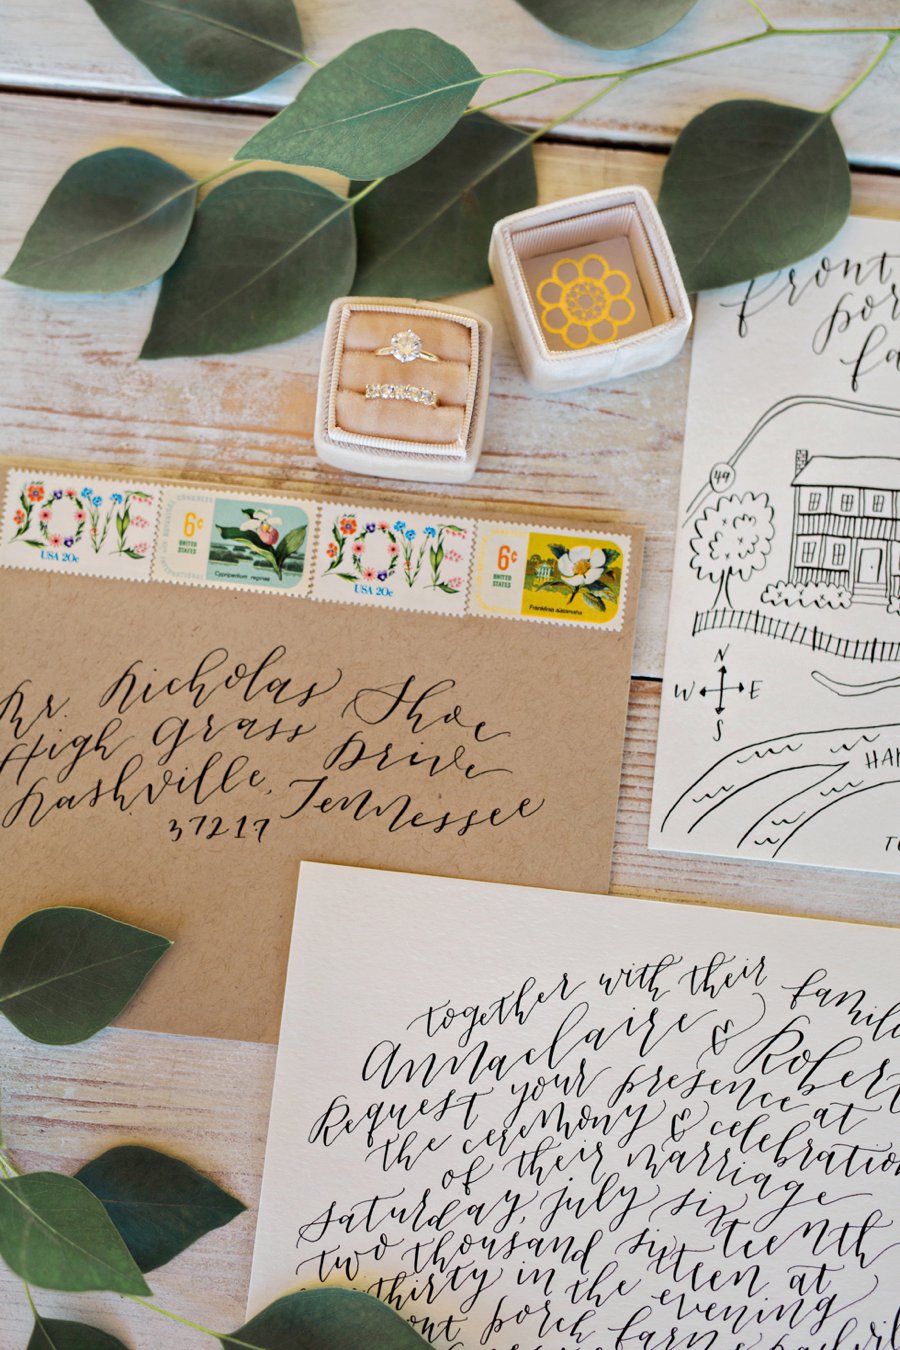 front
por
fa
49
LOVE
USA 20c
6¢
UNITED
STATES
Cypripedium reginae
LOVE
USA 20c
6¢
UNITED
STATES
Franklinia alatamaha
Mr. Nicholas Shoe
High Grass Drive
Nashville, Tennessee
37217
N
W E
S
HAR
together with their famili
Annaclaire & Robert
Request your presence at
the ceremony & celebration
of their marriage
saturday, july sixteenth
two thousand sixteen at
thirty in the evening
ont porch farm